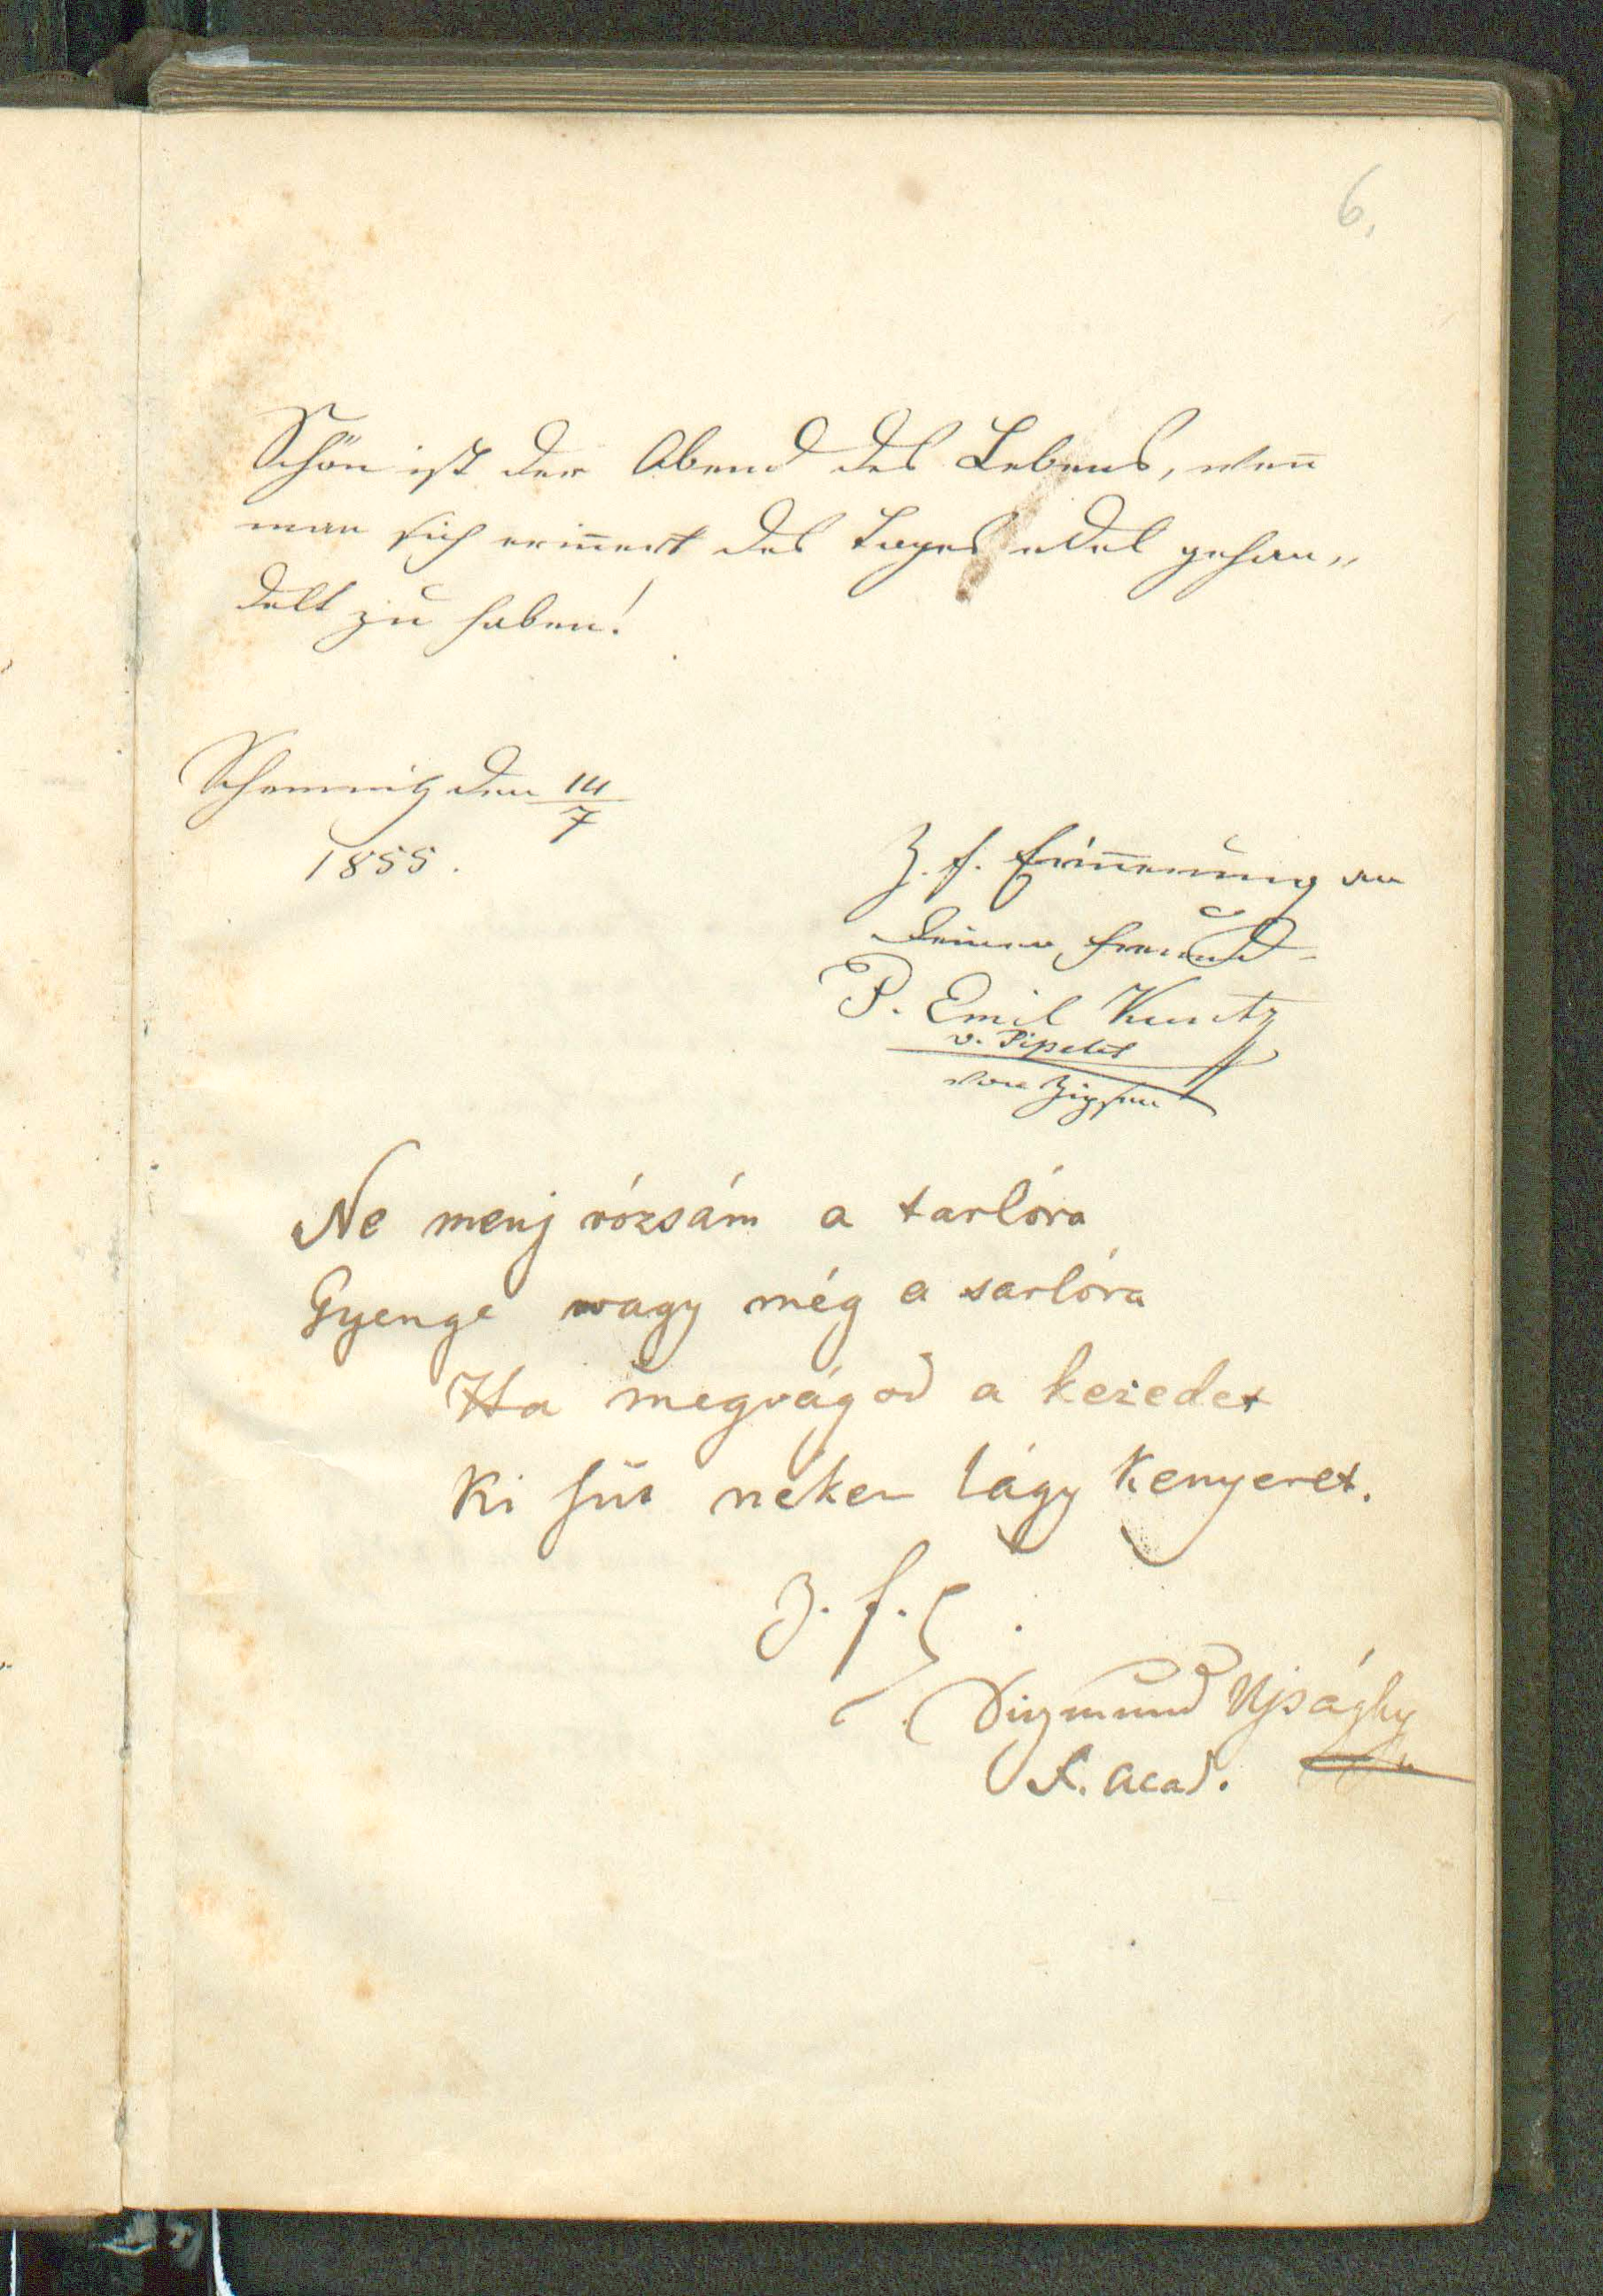 6.
Schön ist der Abend des Lebens, wen̄
man sich erin̄ert des Tages edel gehan„
delt zu haben!
Schemnitz den 14/7
1855.
Z. f. Erin̄erung an
Deinen Freund
P. Emil Kuntz
v. Pipelet
von
Ne menj rózsám a tarlóra
Gyenge vagy még a sarlóra
Ha megvágod a kezedet
Ki süt neken lágy Kenyeret.
Z. f. E.
Sigmund Ujsághy
F. Acad.